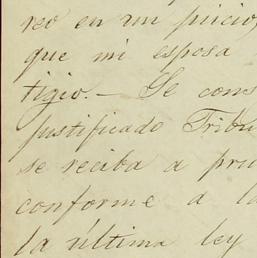 reo en un juicio,
que mi esposa
tigio.— Se cons
justificado Tribu
se reciba a pru
conforme a la
la última ley